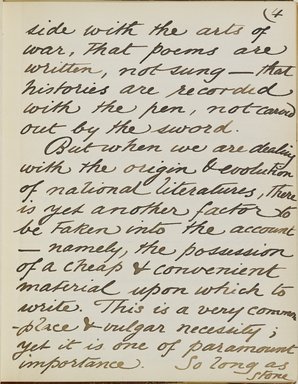 (4
side with the arts of
war, that poems are
written, not sung — that
histories are recorded
with the pen, not carved
out by the sword.
But when we are dealing
with the origin & evolution
of national literatures, there
is yet another factor to
be taken into the account
— namely, the possession
of a cheap & convenient
material upon which to
write. This is a very common
-place & vulgar necessity;
yet it is one of paramount
importance. So long as
stone